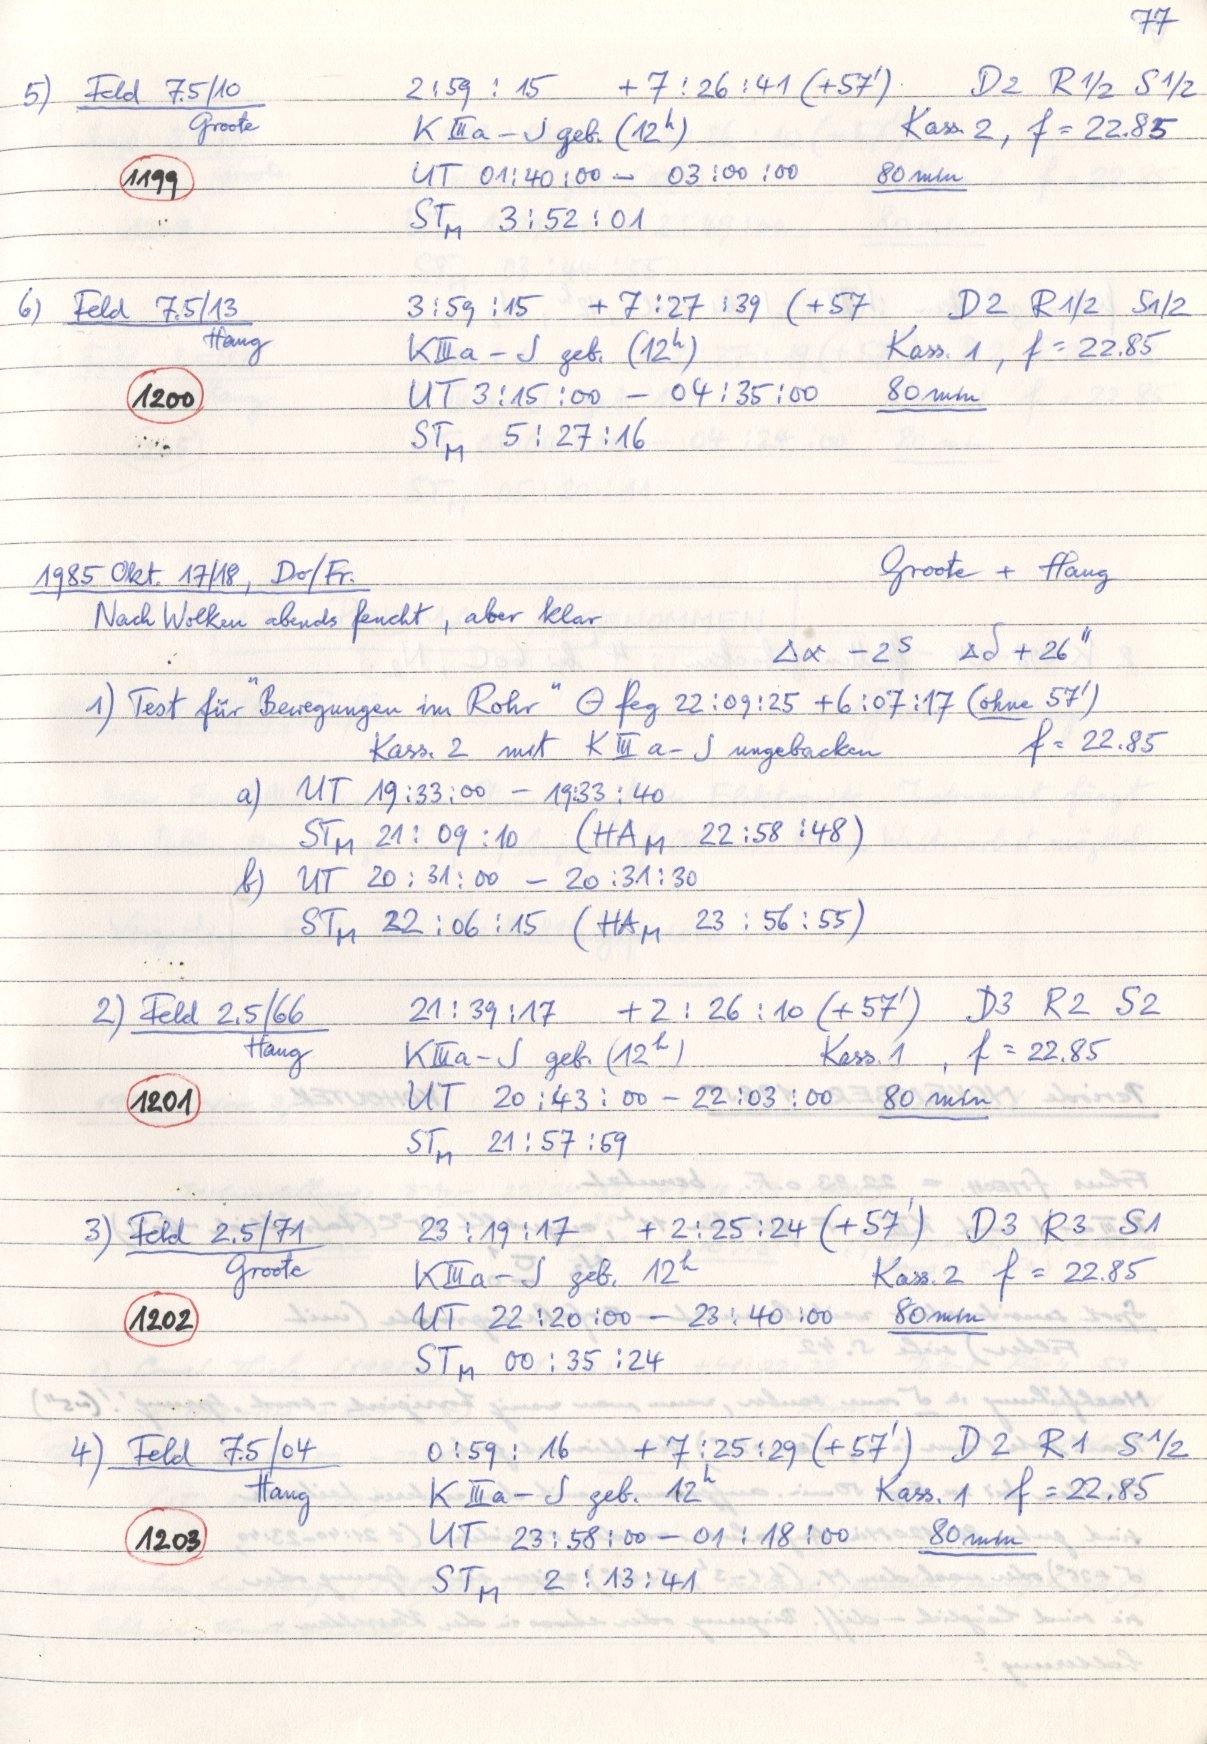 77
5) Feld 7.5/10 2:59:15 +7:26:41 (+57') D2 R1/2 S1/2
Groote KIIIa-J geb. (12h) Kass. 2, f = 22.85
1199 UT 01:40:00 - 03:00:00 80 min
STM 3:52:01
6) Feld 7.5/13 3:59:15 +7:27:39 (+57 D2 R1/2 S1/2
Haug KIIIa-J geb. (12h) Kass. 1, f = 22.85
1200 UT 3:15:00 - 04:35:00 80 min
STM 5:27:16
1985 Okt. 17/18, Do/Fr. Groote + Haug
Nach Wolken abends feucht, aber klar
Δα -2s Δδ +26"
1) Test für "Bewegungen im Rohr" Θ Peg 22:09:25 +6:07:17 (ohne 57')
Kass. 2 mit KIIIa-J ungebacken f = 22.85
a) UT 19:33:00 - 19:33:40
STM 21:09:10 (HAM 22:58:48)
b) UT 20:31:00 - 20:31:30
STM 22:06:15 (HAM 23:56:55)
2) Feld 2.5/66 21:39:17 +2:26:10 (+57') D3 R2 S2
Haug KIIIa-J geb. (12h) Kass. 1, f = 22.85
1201 UT 20:43:00 - 22:03:00 80 min
STM 21:57:59
3) Feld 2.5/71 23:19:17 +2:25:24 (+57') D3 R3 S1
Groote KIIIa-J geb. 12h Kass. 2 f = 22.85
1202 UT 22:20:00 - 23:40:00 80 min
STM 00:35:24
4) Feld 7.5/04 0:59:16 +7:25:29 (+57') D2 R1 S1/2
Haug KIIIa-J geb. 12h Kass. 1 f = 22.85
1203 UT 23:58:00 - 01:18:00 80 min
STM 2:13:41